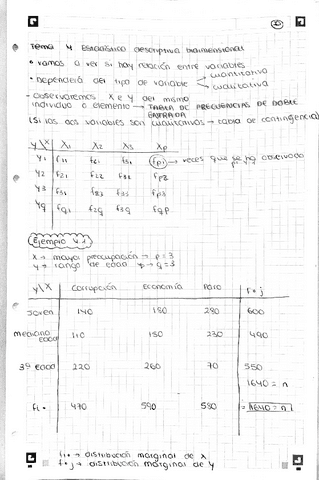 Tema 4 Estadística descriptiva bidimensional
• vamos a ver si hay relación entre variables
• Dependerá del tipo de variable cuantitativa
cualitativa
- observaremos X e Y del mismo
individuo o elemento → TABLA DE FRECUENCIAS DE DOBLE
ENTRADA
(Si las dos variables son cualitativas → tabla de contingencia)
Y\X X1 X2 X3 Xp
Y1 f11 f21 f31 fp1 → veces que se ha observado
Y2
Y3
Yq fq1 f2q f3q fqp
Ejemplo 4.1
X → mayor preocupación → p = 3
Y → rango de edad → q = 3
Y\X Corrupción Economía Paro f•j
Joven 140 180 280 600
mediana
edad 110 150 230 490
3ª edad 220 260 70 550
1640 = n
fi• 470 590 580 = 1640 = n
fi• → distribución marginal de X
f•j → distribución marginal de Y